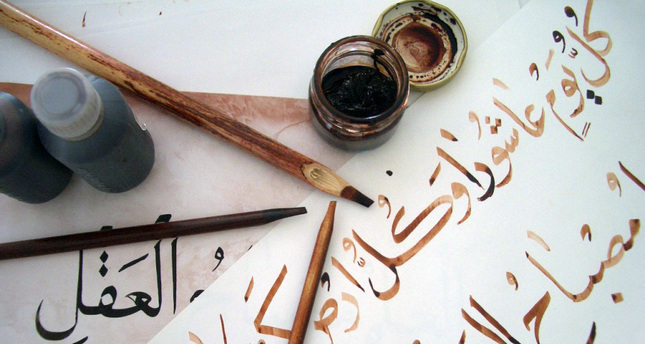 كُلُّ يَومٍ عَاشُورٰا وَكُلُّ اَرْضٍ
مِصْبَاحُ
العَقلِ